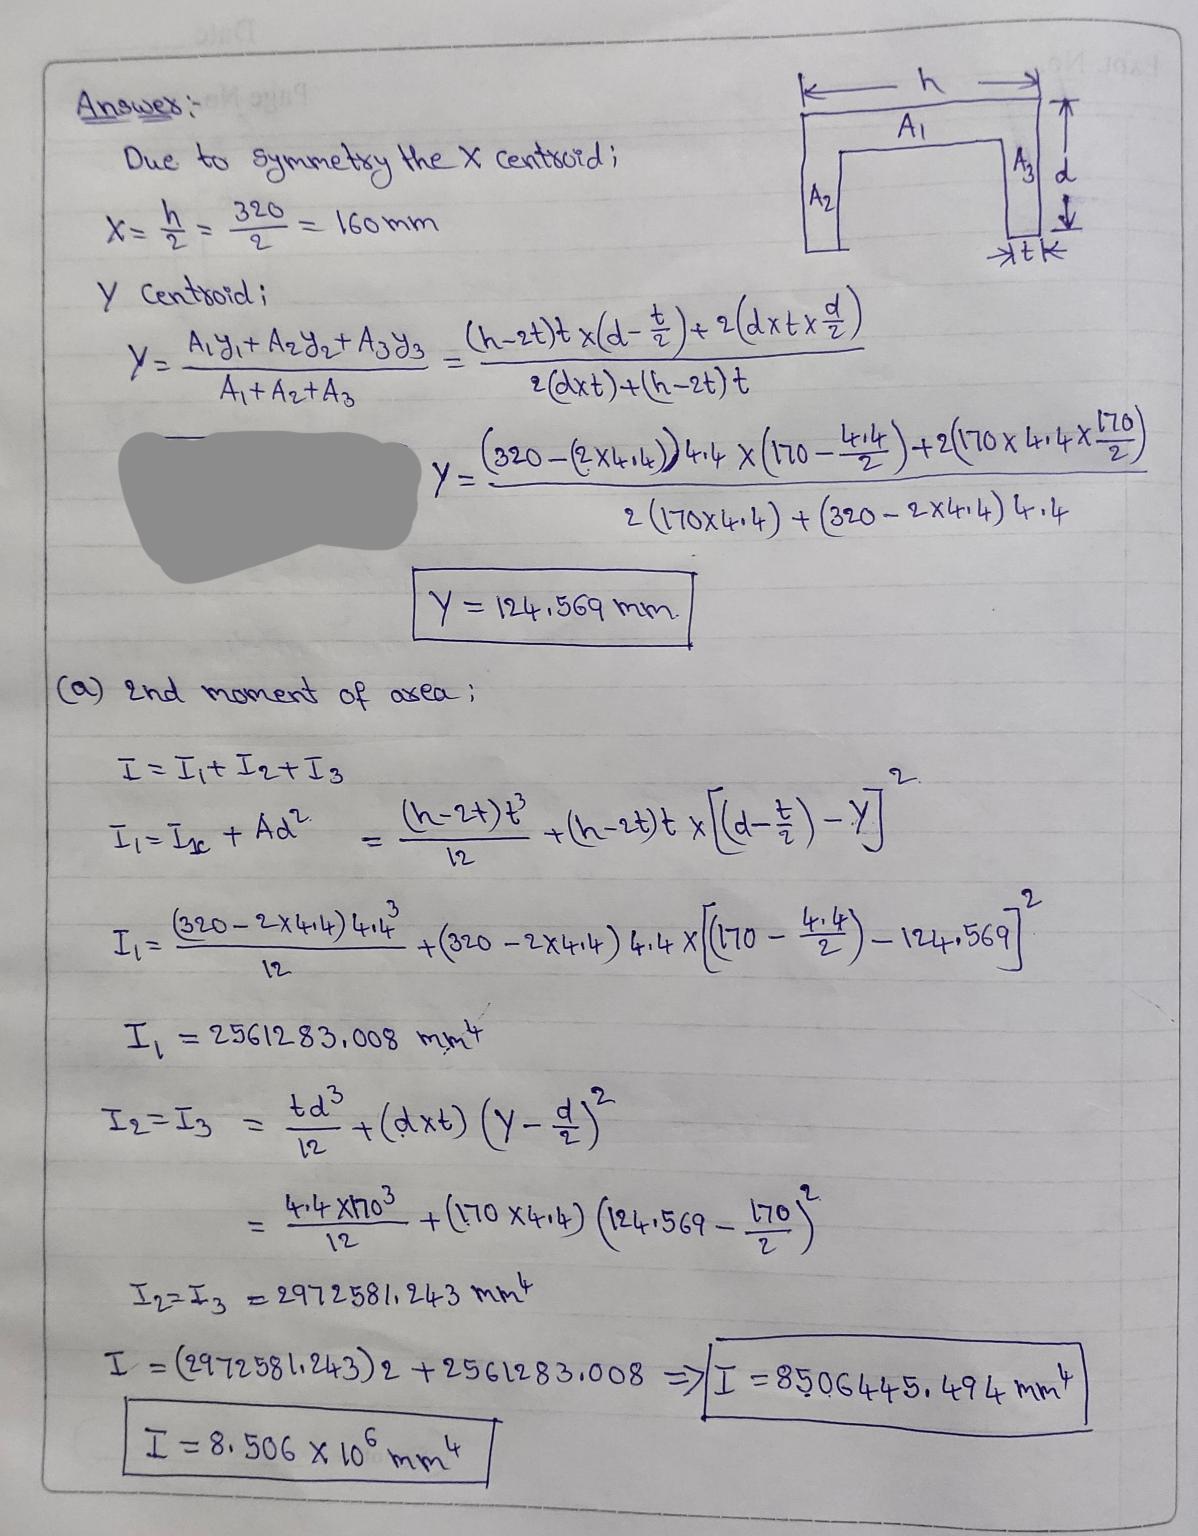 Answer:-
h
A1
A2
A3
d
t
Due to symmetry the X centroid;
X = h/2 = 320/2 = 160mm
Y centroid;
Y = (A1y1 + A2y2 + A3y3)/(A1 + A2 + A3) = ((h-2t)t x (d - t/2) + 2(d x t x d/2))/(2(dxt) + (h-2t)t)
Y = ((320 - (2x4.4))4.4 x (170 - 4.4/2) + 2(170 x 4.4 x 170/2))/(2(170x4.4) + (320 - 2x4.4)4.4)
Y = 124.569 mm.
(a) 2nd moment of area;
I = I1 + I2 + I3
I1 = Ix + Ad² = (h-2t)t³/12 + (h-2t)t x [(d - t/2) - Y]²
I1 = (320 - 2x4.4)4.4³/12 + (320 - 2x4.4)4.4 x [(170 - 4.4/2) - 124.569]²
I1 = 2561283.008 mm⁴
I2 = I3 = td³/12 + (dxt)(Y - d/2)²
= 4.4 x 170³/12 + (170 x 4.4)(124.569 - 170/2)²
I2 = I3 = 2972581.243 mm⁴
I = (2972581.243)2 + 2561283.008 => I = 8506445.494 mm⁴
I = 8.506 x 10⁶ mm⁴